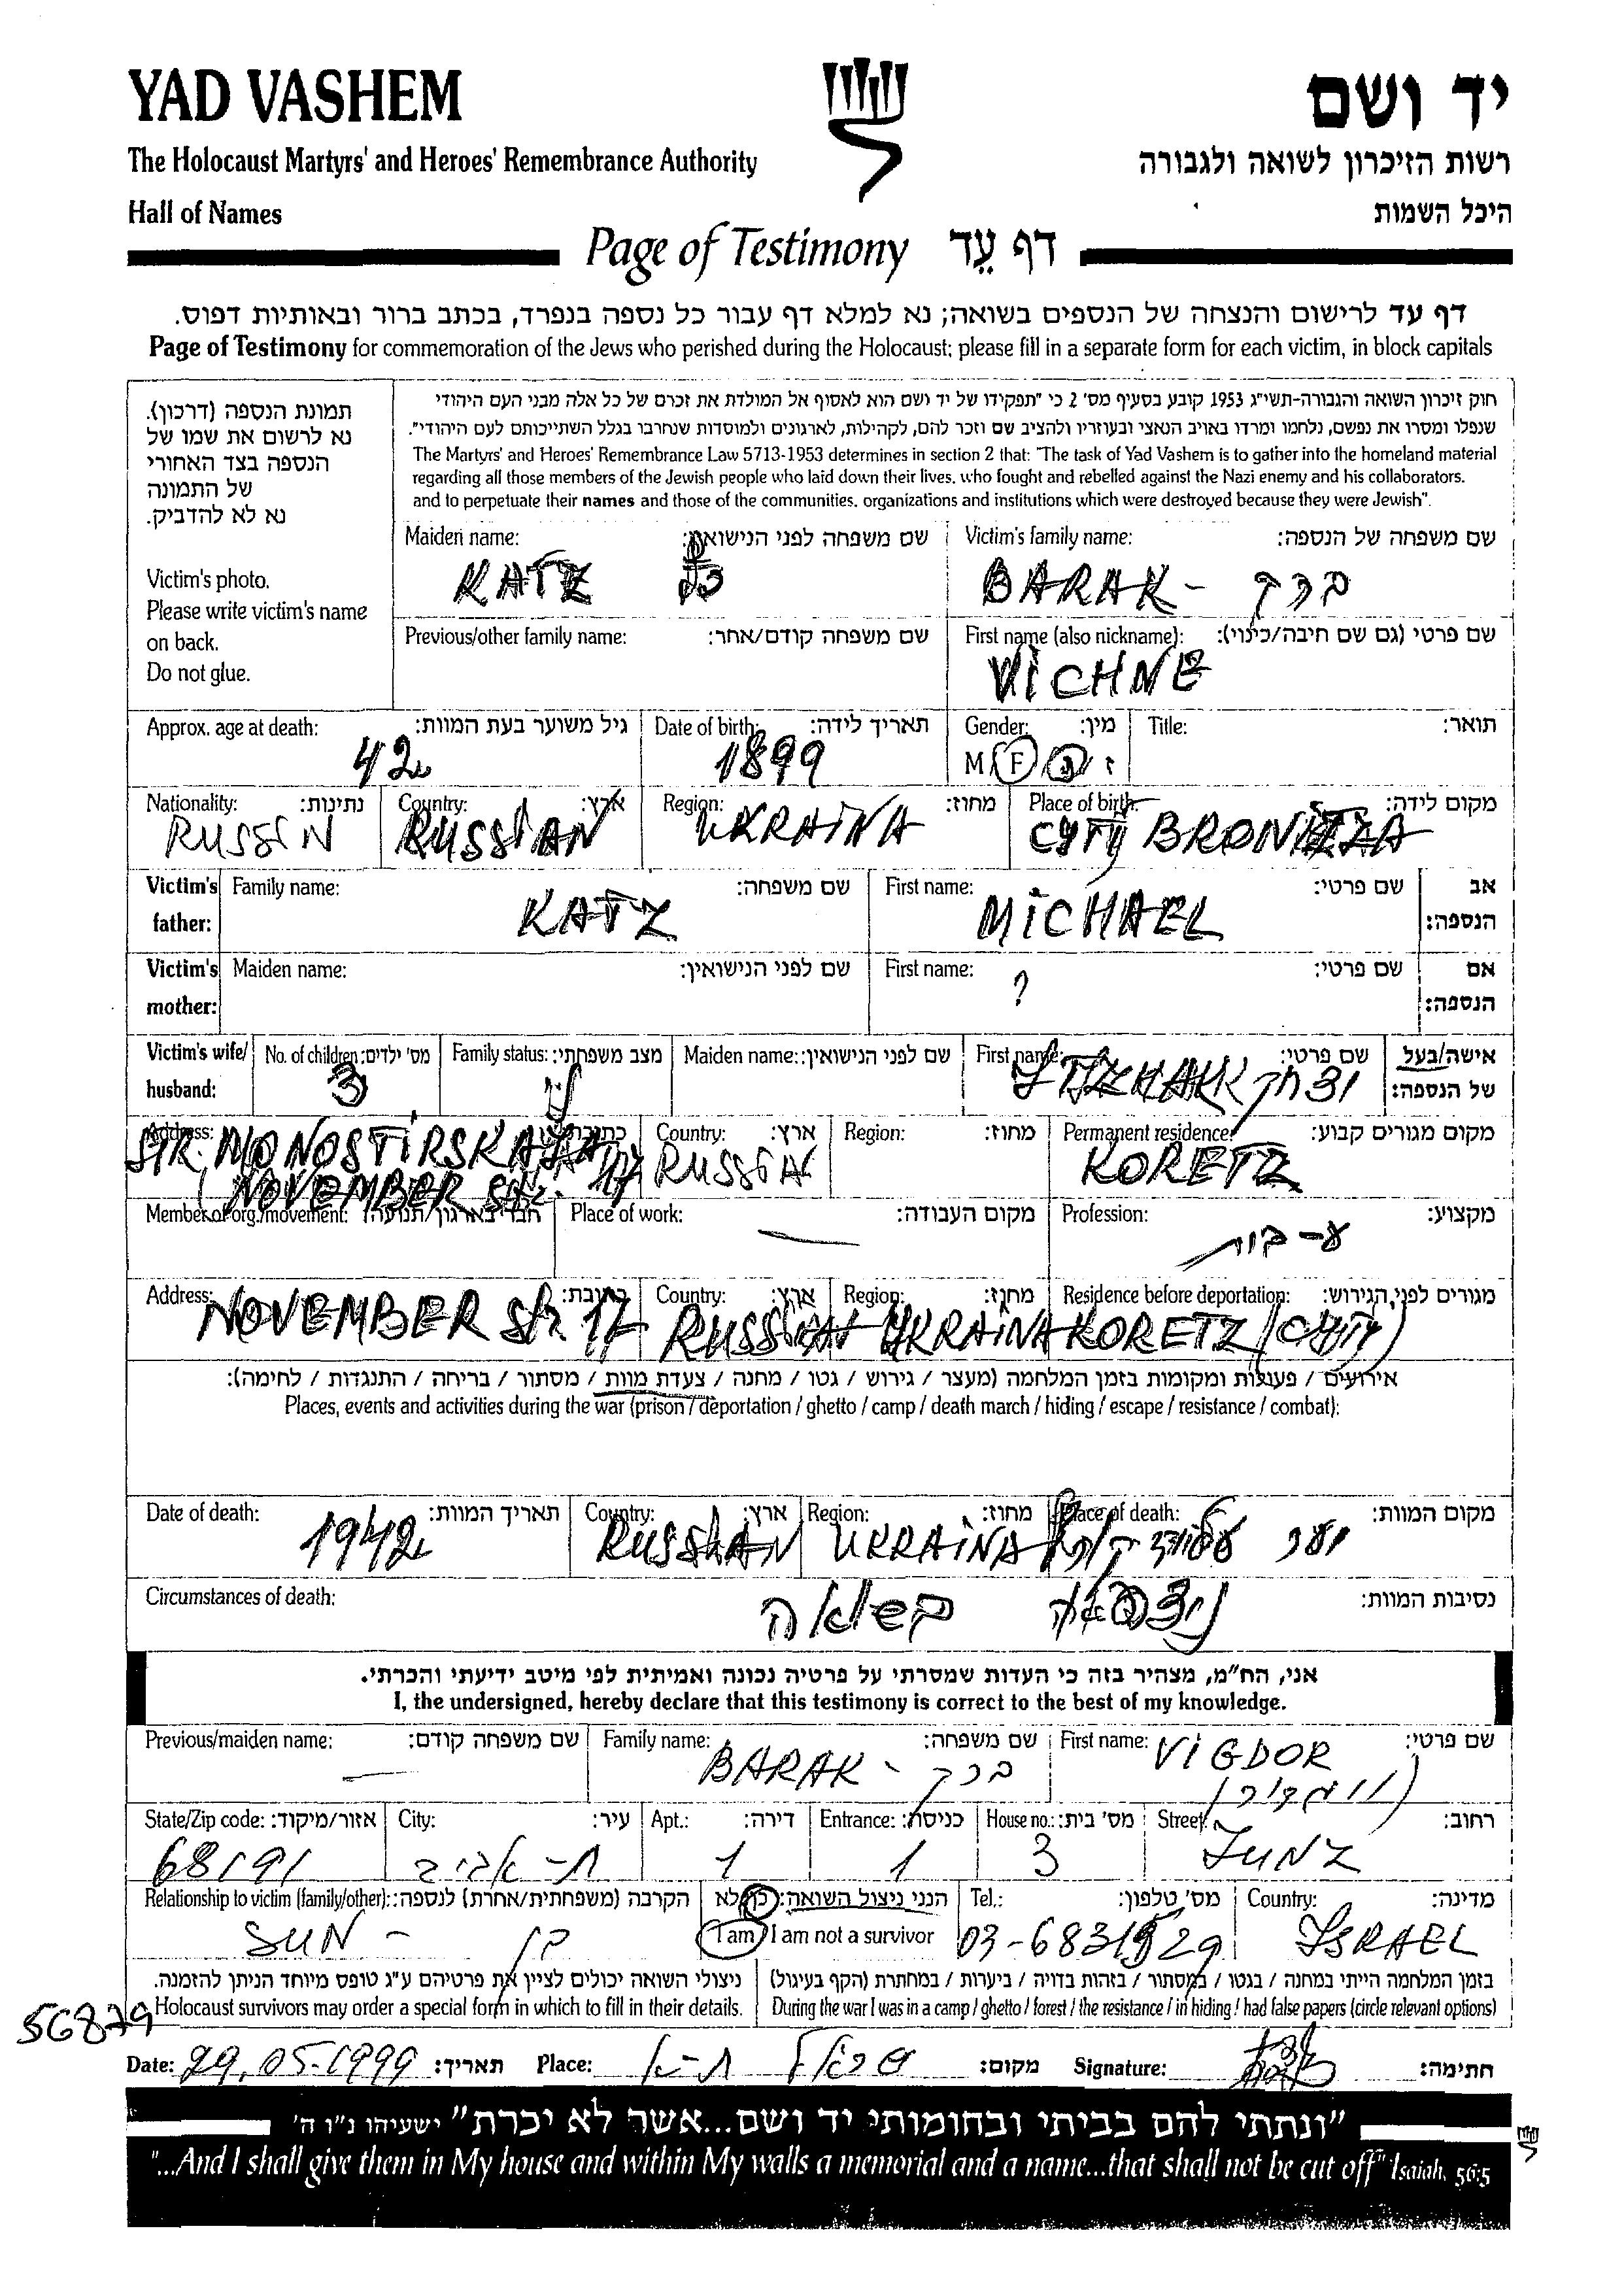 YAD VASHEM
יד ושם
The Holocaust Martyrs' and Heroes' Remembrance Authority
רשות הזיכרון לשואה ולגבורה
Hall of Names
היכל השמות
Page of Testimony דף עֵד
דף עד לרישום והנצחה של הנספים בשואה; נא למלא דף עבור כל נספה בנפרד, בכתב ברור ובאותיות דפוס.
Page of Testimony for commemoration of the Jews who perished during the Holocaust; please fill in a separate form for each victim, in block capitals
תמונת הנספה (דרכון).
נא לרשום את שמו של
הנספה בצד האחורי
של התמונה
נא לא להדביק.
Victim's photo.
Please write victim's name
on back.
Do not glue.
חוק זיכרון השואה והגבורה-תשי"ג 1953 קובע בסעיף מס' 2 כי "תפקידו של יד ושם הוא לאסוף אל המולדת את זכרם של כל אלה מבני העם היהודי
שנפלו ומסרו את נפשם, נלחמו ומרדו באויב הנאצי ובעוזריו ולהציב שם וזכר להם, לקהילות, לארגונים ולמוסדות שנחרבו בגלל השתייכותם לעם היהודי".
The Martyrs' and Heroes' Remembrance Law 5713-1953 determines in section 2 that: "The task of Yad Vashem is to gather into the homeland material
regarding all those members of the Jewish people who laid down their lives, who fought and rebelled against the Nazi enemy and his collaborators,
and to perpetuate their names and those of the communities, organizations and institutions which were destroyed because they were Jewish".
Maiden name: שם משפחה לפני הנישואין: Victim's family name: שם משפחה של הנספה:
KATZ כץ BARAK - ברק
Previous/other family name: שם משפחה קודם/אחר: First name (also nickname): שם פרטי (גם שם חיבה/כינוי):
VICHNE
Approx. age at death: גיל משוער בעת המוות: Date of birth: תאריך לידה: Gender: מין: Title: תואר:
42 1899 M F נ ז
Nationality: נתינות: Country: ארץ: Region: מחוז: Place of birth: מקום לידה:
RUSSIN RUSSIAN UKRAINA CYTY BRONITZA
Victim's father: Family name: שם משפחה: First name: שם פרטי: אב הנספה:
KATZ MICHAEL
Victim's mother: Maiden name: שם לפני הנישואין: First name: שם פרטי: אם הנספה:
?
Victim's wife/ husband: No. of children: מס' ילדים: Family status: מצב משפחתי: Maiden name: שם לפני הנישואין: First name: שם פרטי: אישה/בעל של הנספה:
3 ITZHAK יצחק
Address: כתובת: Country: ארץ: Region: מחוז: Permanent residence: מקום מגורים קבוע:
STR. MONOSTIRSKAJA 17 RUSSIAN KORETZ
(NOVEMBER Str.
Member of org./movement: חבר בארגון/תנועה: Place of work: מקום העבודה: Profession: מקצוע:
ע-בית
Address: כתובת: Country: ארץ: Region: מחוז: Residence before deportation: מגורים לפני הגירוש:
NOVEMBER Str 17 RUSSIAN UKRAINA KORETZ
אירועים / פעולות ומקומות בזמן המלחמה (מעצר / גירוש / גטו / מחנה / צעדת מוות / מסתור / בריחה / התנגדות / לחימה):
Places, events and activities during the war (prison / deportation / ghetto / camp / death march / hiding / escape / resistance / combat):
Date of death: תאריך המוות: Country: ארץ: Region: מחוז: Place of death: מקום המוות:
1942 RUSSIAN UKRAINA יער
Circumstances of death: נסיבות המוות:
ניצפתה בשואה
אני, הח"מ, מצהיר בזה כי העדות שמסרתי על פרטיה נכונה ואמיתית לפי מיטב ידיעתי והכרתי.
I, the undersigned, hereby declare that this testimony is correct to the best of my knowledge.
Previous/maiden name: שם משפחה קודם: Family name: שם משפחה: First name: שם פרטי:
BARAK - ברק VIGDOR
State/Zip code: אזור/מיקוד: City: עיר: Apt.: דירה: Entrance: כניסה: House no.: מס' בית: Street: רחוב:
68191 ת-אביב 1 1 3 ZUNZ
Relationship to victim (family/other): הקרבה (משפחתית/אחרת) לנספה: הנני ניצול השואה: כן/לא Tel.: מס' טלפון: Country: מדינה:
SUN - בן I am / I am not a survivor 03-6831529 ISRAEL
ניצולי השואה יכולים לציין את פרטיהם ע"ג טופס מיוחד הניתן להזמנה. בזמן המלחמה הייתי במחנה / בגטו / במסתור / בזהות בדויה / ביערות / במחתרת (הקף בעיגול)
Holocaust survivors may order a special form in which to fill in their details. During the war I was in a camp / ghetto / forest / the resistance / in hiding / had false papers (circle relevant options)
56879
Date: 29.05.1999 תאריך: Place: ת-א מקום: Signature: חתימה:
"ונתתי להם בביתי ובחומותי יד ושם...אשר לא יכרת" ישעיהו נ"ו ה'
"...And I shall give them in My house and within My walls a memorial and a name...that shall not be cut off" Isaiah, 56:5